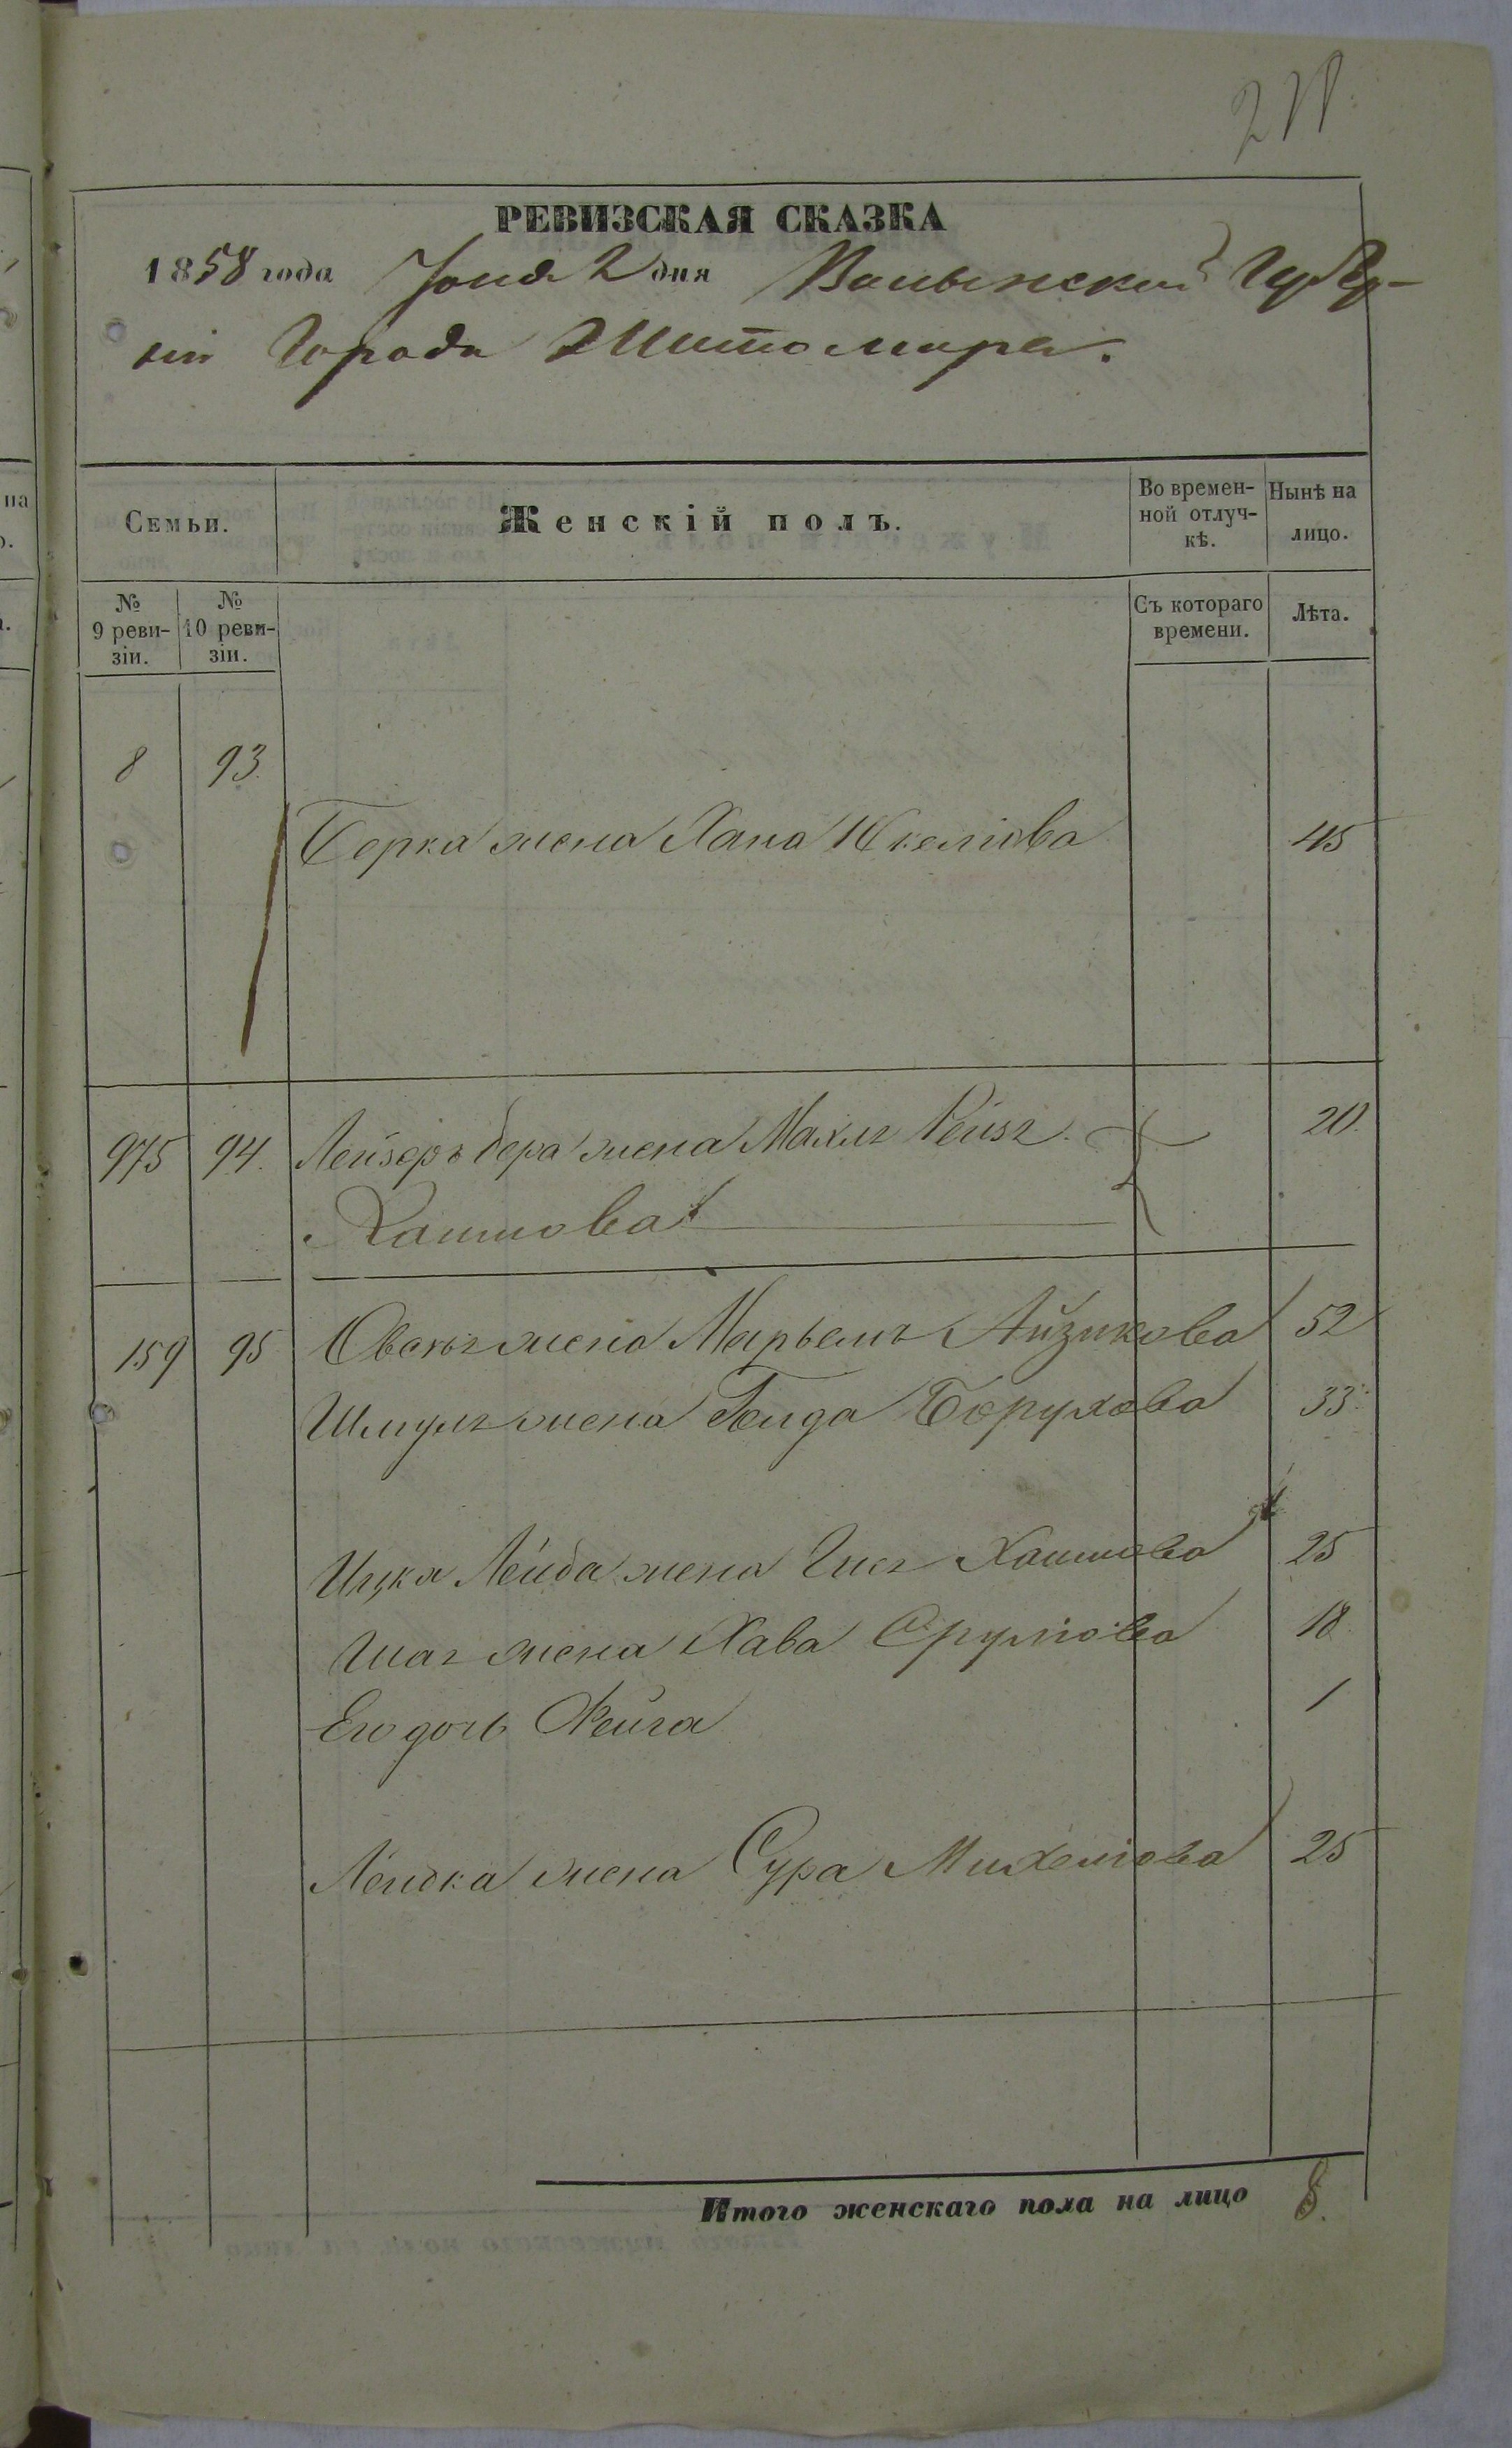 РЕВИЗСКАЯ СКАЗКА
1858 года Іюня 2 дня Волынской Губер-
ніи Города Житомира.
Семьи.
Женскій полъ.
Во времен-
ной отлуч-
кѣ.
Нынѣ на
лицо.
№
9 реви-
зіи.
№
10 реви-
зіи.
Съ котораго
времени.
Лѣта.
8 93.
Берка жена Хана 45
975 94. Лейзеръ бера жена Махля Рейзя 20.
Хаимова
159 95 Овсея жена Марьемъ Айзикова 52
Шмуля жена Борухова 33
Ицка Лейба жена Хаимова 25
жена Хава Срулiова 18
Его дочь Фейга 1
Лейбка жена Сура Михелiова 25
Итого женскаго пола на лицо 8.